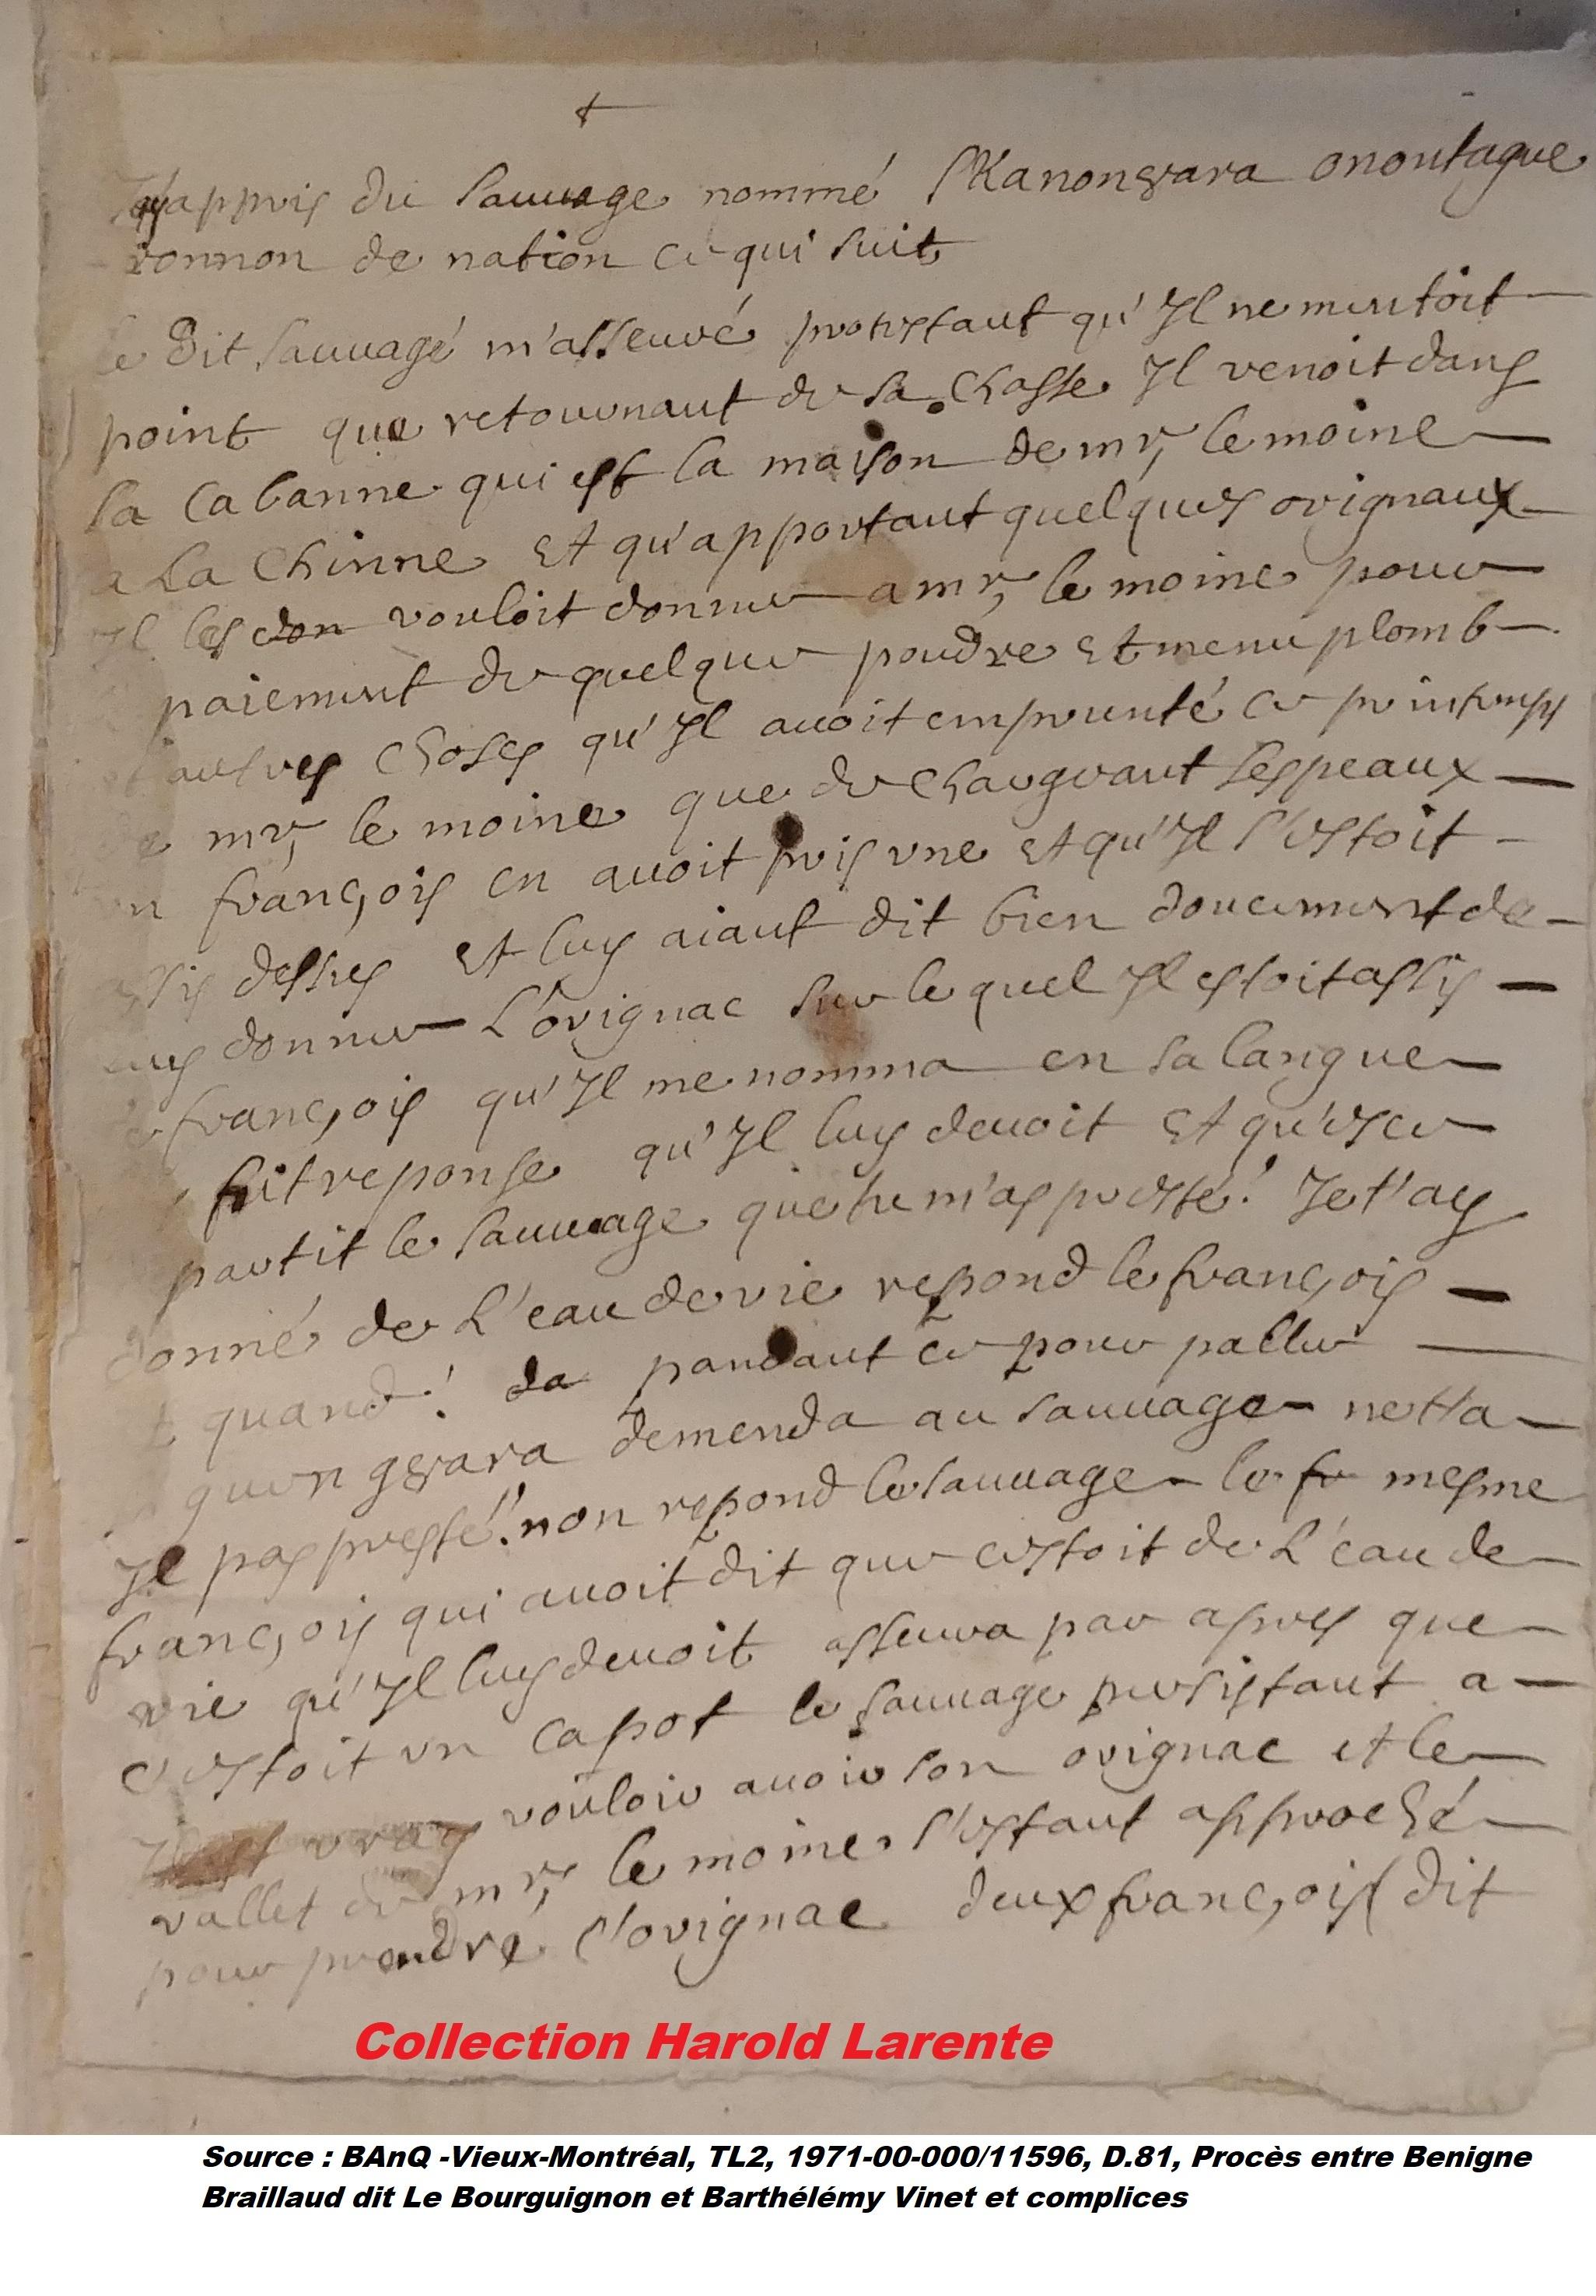 J'ay appris du Sauuage nommé SKanon8ara onontague
ronnon de nation ce qui suit
le Dit Sauuage m'asseuré protestant qu'Jl ne mentoit
point que retournant de sa Chasse Jl venoit dans
sa Cabanne qui est la maison de mr, le moine
a La Chinne Et qu'apportant quelques orignaux
Jl les don vouloit donner a mr, le moine pour
paiement de quelque poudre Et menu plomb
et autres Choses qu'Jl auoit emprunté ce printemps
de mr, le moine que de Chargeant ses peaux
un franc,ois en auoit pris vne Et qu'Jl s'estoit
assis dessus Et luy aiant dit bien doucement de
luy donner L'orignac sur le quel Jl estoit assis
le franc,ois qu'Jl me nomma en sa langue
fit reponse qu'Jl luy deuoit Et qu'est ce
partit le Sauuage que tu m'as presté! Je t'ay
donné de L'eau de vie repond le franc,ois
Et quand! da pandant ce pour paller
quen g8ara demenda au Sauuage ne t'a
Jl pas presté! non repond le sauuage le fr mesme
franc,ois qui auoit dit que c'estoit de L'eau de
vie qu'Jl luy deuoit asseura par apres que
c'estoit vn Capot le sauuage persistant a
vouloir auoir son orignac et le
vallet de mr, le moine s'estant approché
pour prendre l'orignac deux franc,ois dit
Collection Harold Larente
Source : BAnQ -Vieux-Montréal, TL2, 1971-00-000/11596, D.81, Procès entre Benigne
Braillaud dit Le Bourguignon et Barthélémy Vinet et complices